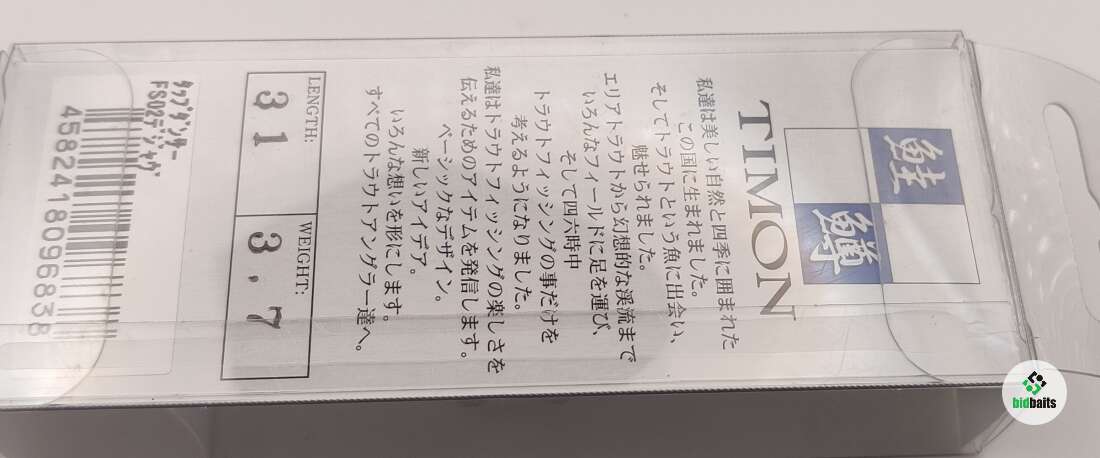 鮭
鱒
TIMON
私達は美しい自然と四季に囲まれた
この国に生まれました。
そしてトラウトという魚に出会い、
魅せられました。
エリアトラウトから幻想的な渓流まで
いろんなフィールドに足を運び、
そして四六時中
トラウトフィッシングの事だけを
考えるようになりました。
私達はトラウトフィッシングの楽しさを
伝えるためのアイテムを発信します。
ベーシックなデザイン。
新しいアイデア。
いろんな想いを形にします。
すべてのトラウトアングラー達へ。
LENGTH:
31
WEIGHT:
3.7
ﾀｯﾌﾟﾀﾞﾝｻｰ
FS02ﾃﾞｼﾞｬｳﾞ
4582418096838
bidbaits